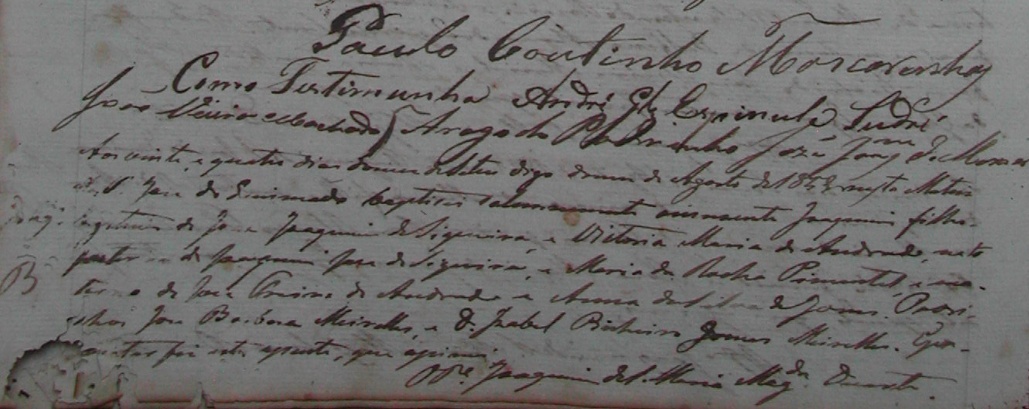 Paulo Coutinho Mascarenhas
Como Testimunha André Glz Espinula Sudré
João Vieira Machado Rogo do Padrinho José Joaqm de Moraes
Aos vinte, e quatro dias do mes de digo do mes de Agosto de 185 nesta Matriz
de S. José de baptisei solemnemente innocente Joaquim filho
legitimo de José Joaquim de Siqueira, e Victoria Maria de Andrade, neto
paterno de Joaquim José de Siqueira, e Maria da Rocha Pimentel, e ma-
terno de José Pereira de Andrade e Anna da Silva de Jesus. Padri-
nhos José Barbosa Meirelles, e D. Izabel Pinheiro Gomes Meirelles. E pa-
constar fiz este assento, que assignei.
Joaquim de S. Maria Magda Duarte
Joaqi
B